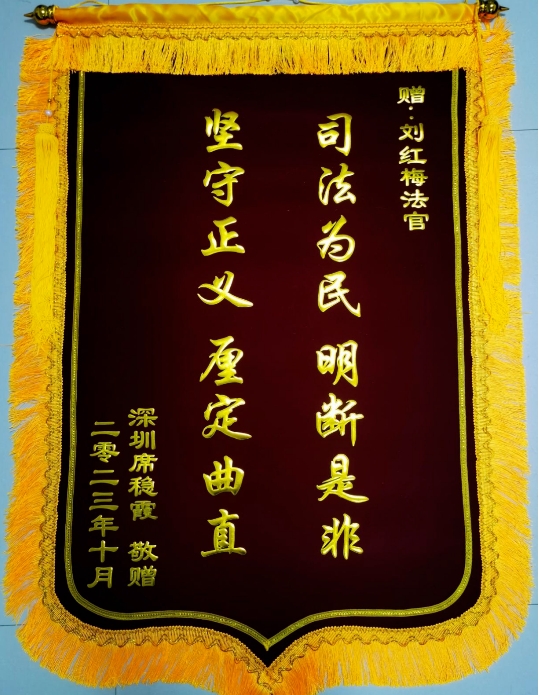 赠：刘红梅法官
司法为民 明断是非
坚守正义 厘定曲直
深圳席稳霞 敬赠
二零二三年十月